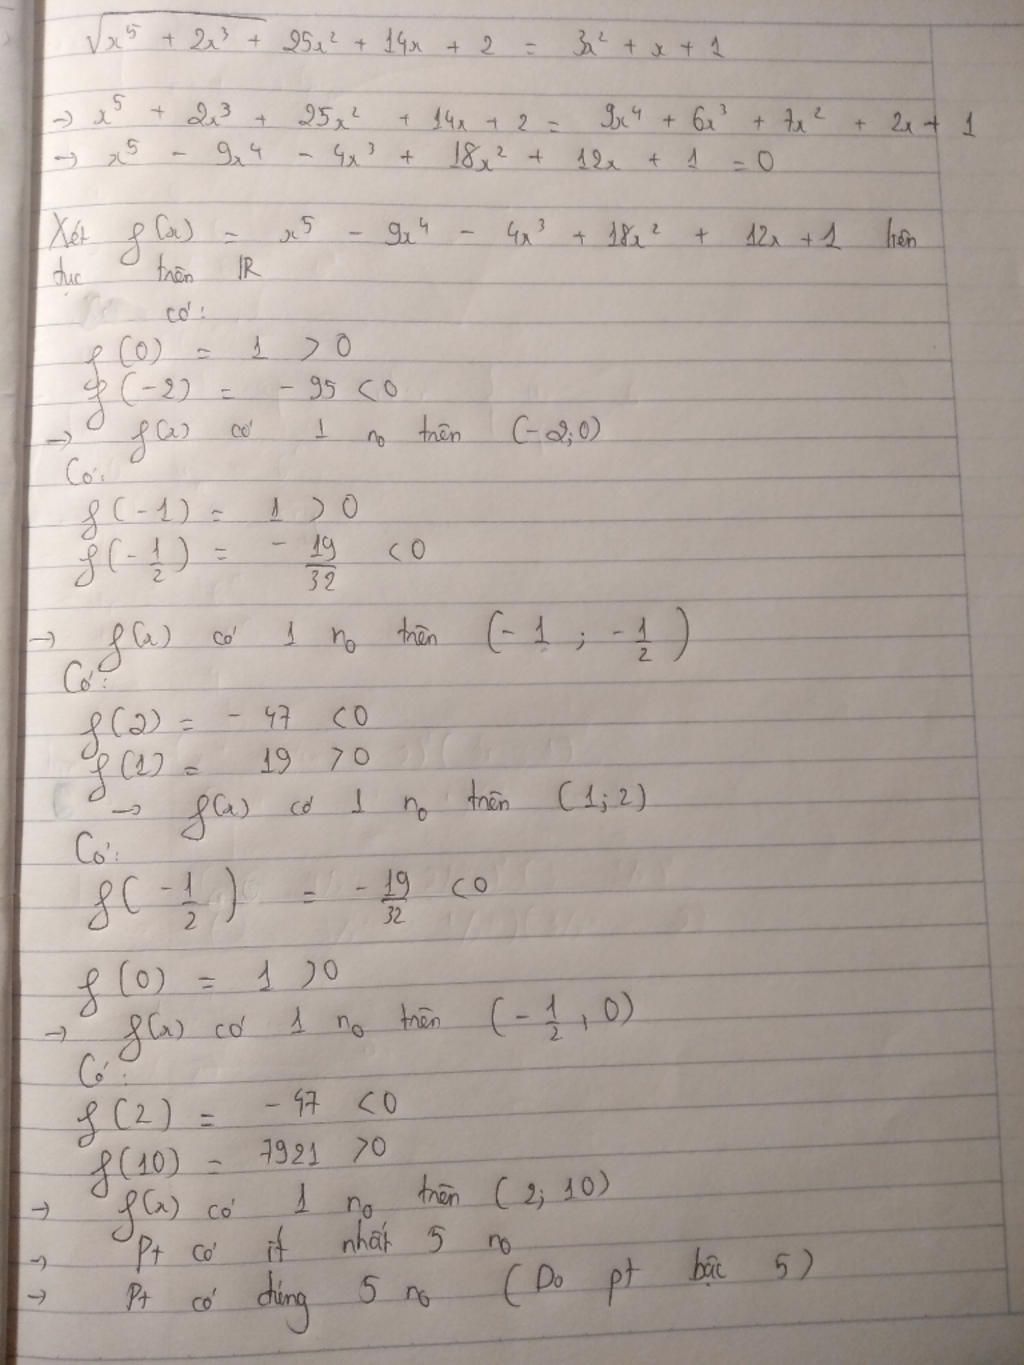 √x⁵ + 2x³ + 25x² + 14x + 2 = 3x² + x + 1
→ x⁵ + 2x³ + 25x² + 14x + 2 = 9x⁴ + 6x³ + 7x² + 2x + 1
→ x⁵ - 9x⁴ - 4x³ + 18x² + 12x + 1 = 0
Xét f(x) = x⁵ - 9x⁴ - 4x³ + 18x² + 12x + 1 liên
tục trên ℝ
có:
f(0) = 1 > 0
f(-2) = - 95 < 0
→ f(x) có 1 no trên (-2;0)
Có:
f(-1) = 1 > 0
f(-1/2) = - 19/32 < 0
→ f(x) có 1 no trên (-1 ; -1/2)
Có:
f(2) = - 47 < 0
f(1) = 19 > 0
→ f(x) có 1 no trên (1;2)
Có:
f(-1/2) = - 19/32 < 0
f(0) = 1 > 0
→ f(x) có 1 no trên (-1/2, 0)
Có:
f(2) = - 47 < 0
f(10) = 7921 > 0
→ f(x) có 1 no trên (2; 10)
→ Pt có ít nhất 5 no
→ Pt có đúng 5 no (Do pt bậc 5)